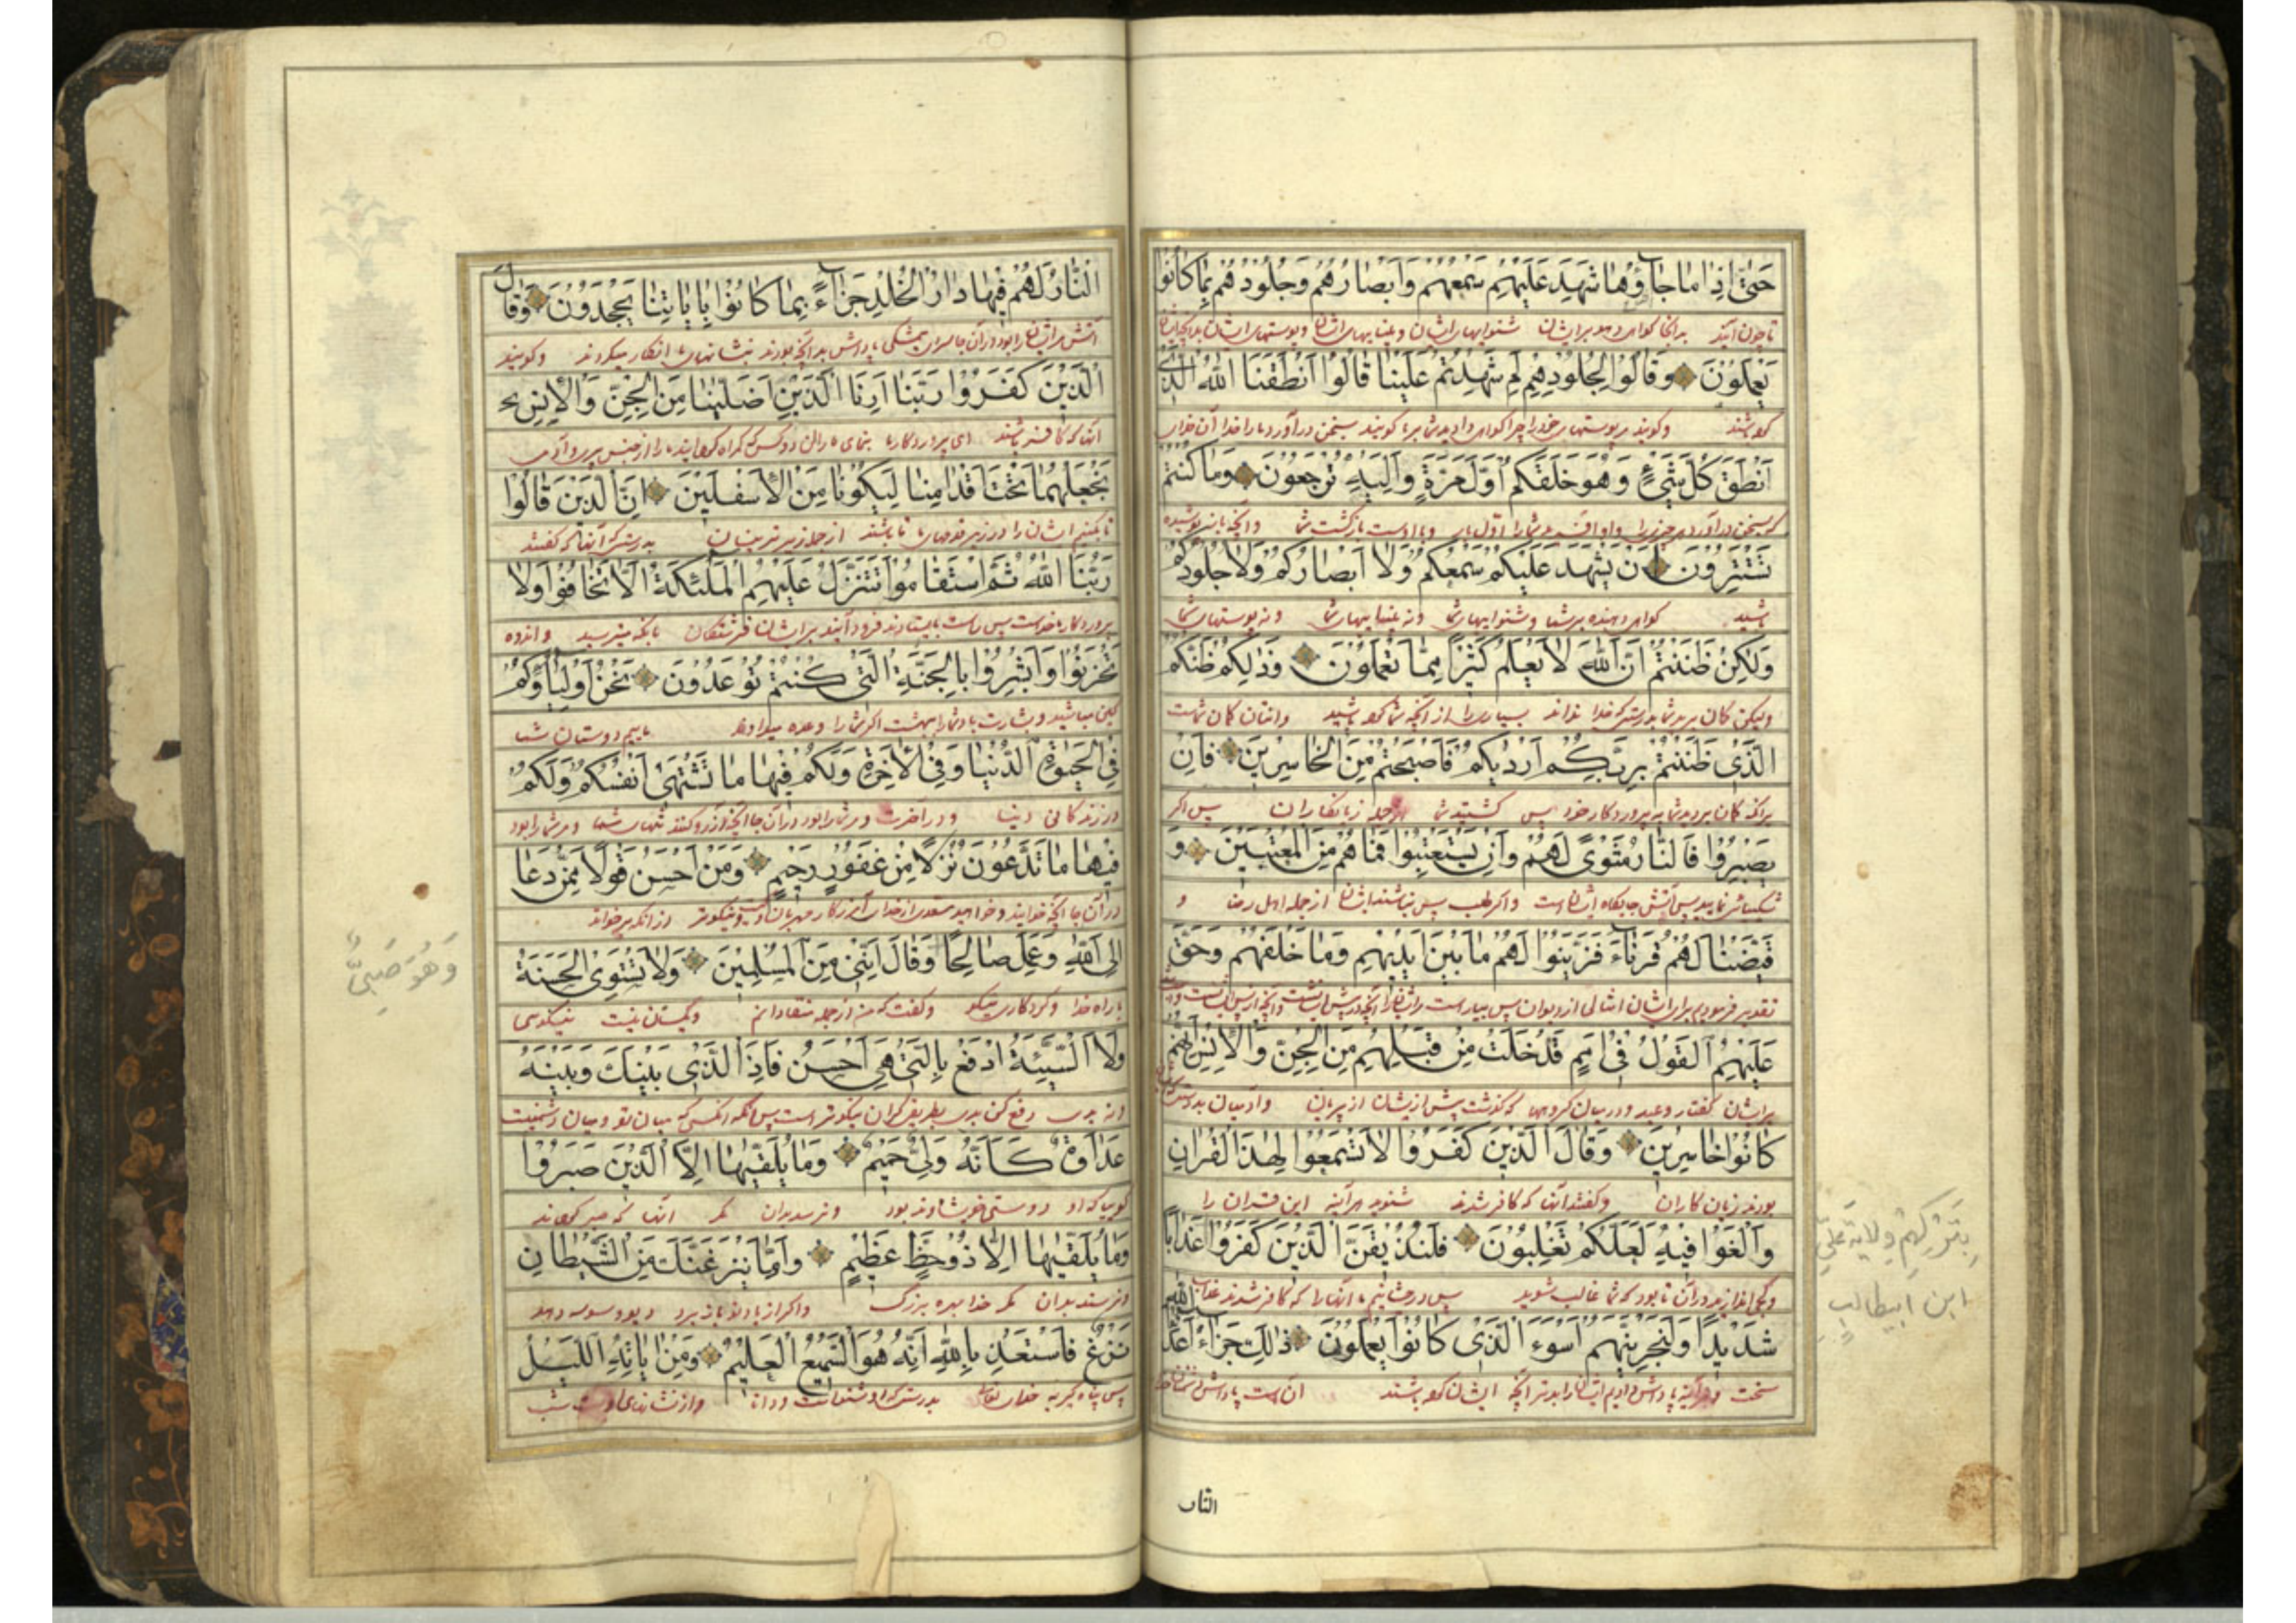 حَتّٰى اِذَا مَا جَاؤُهَا شَهِدَ عَلَيْهِمْ سَمْعُهُمْ وَاَبْصَارُهُمْ وَجُلُودُهُمْ بِمَا كَانُوا
تا چون آیند بدانجا گواهی دهد بر ایشان شنوایهای ایشان و بینایهای ایشان و پوستهای ایشان بدانچه
يَعْمَلُونَ وَقَالُوا لِجُلُودِهِمْ لِمَ شَهِدْتُمْ عَلَيْنَا قَالُوا اَنْطَقَنَا اللّٰهُ الَّذِي
و گویند مر پوستهای خود را چرا گواهی دادید شما بر ما گویند بسخن درآورد ما را خدا آن خدای
اَنْطَقَ كُلَّ شَيْءٍ وَهُوَ خَلَقَكُمْ اَوَّلَ مَرَّةٍ وَاِلَيْهِ تُرْجَعُونَ وَمَا كُنْتُمْ
که بسخن درآورد هر چیزی را و او آفرید شما را اول بار و با اوست بازگشت شما و آنچه
تَسْتَتِرُونَ اَنْ يَشْهَدَ عَلَيْكُمْ سَمْعُكُمْ وَلَا اَبْصَارُكُمْ وَلَا جُلُودُكُمْ
گواهی دهنده بر شما شنوایهای شما و نه بینایهای شما و نه پوستهای شما
وَلٰكِنْ ظَنَنْتُمْ اَنَّ اللّٰهَ لَا يَعْلَمُ كَثِيرًا مِمَّا تَعْمَلُونَ وَذٰلِكُمْ ظَنُّكُمْ
ولیکن گمان بردید شما بدرستی که خدا نداند بسیاری را از آنچه شما و اینتان گمان شماست
الَّذِي ظَنَنْتُمْ بِرَبِّكُمْ اَرْدٰيكُمْ فَاَصْبَحْتُمْ مِنَ الْخَاسِرِينَ فَاِنْ
گمان بردید شما به پروردگار خود پس گشتید شما از جمله زیانکاران پس اگر
يَصْبِرُوا فَالنَّارُ مَثْوًى لَهُمْ وَاِنْ يَسْتَعْتِبُوا فَمَا هُمْ مِنَ الْمُعْتَبِينَ وَ
شکیبائی نمایند پس آتش جایگاه ایشان است و اگر طلب پس نباشند ایشان از جمله اهل رضا و
قَيَّضْنَا لَهُمْ قُرَنَاءَ فَزَيَّنُوا لَهُمْ مَا بَيْنَ اَيْدِيهِمْ وَمَا خَلْفَهُمْ وَحَقَّ
تقدیر فرمودیم برای ایشان از دیوان پس
عَلَيْهِمُ الْقَوْلُ فِي اُمَمٍ قَدْ خَلَتْ مِنْ قَبْلِهِمْ مِنَ الْجِنِّ وَالْاِنْسِ اِنَّهُمْ
بر ایشان گفتار وعید در میان گروهها که گذشت پیش از ایشان از پریان و آدمیان
كَانُوا خَاسِرِينَ وَقَالَ الَّذِينَ كَفَرُوا لَا تَسْمَعُوا لِهٰذَا الْقُرْاٰنِ
بودند زیان کاران و گفتند آنها که کافر شدند شنوید هر آینه این قرآن را
وَالْغَوْا فِيهِ لَعَلَّكُمْ تَغْلِبُونَ فَلَنُذِيقَنَّ الَّذِينَ كَفَرُوا عَذَابًا
در آن تا بود که شما غالب شوید پس آنها را که کافر شدند عذاب
شَدِيدًا وَلَنَجْزِيَنَّهُمْ اَسْوَءَ الَّذِي كَانُوا يَعْمَلُونَ ذٰلِكَ جَزَاءُ اَعْدَاءِ اللّٰهِ
سخت و هر آینه پاداش دهیم ایشان را بدتر آنچه ایشان آن است پاداش دشمنان خدا
بِتَرْكِهِمْ وِلَايَةَ عَلِيِّ
ابن ابیطالب
النار
النَّارُ لَهُمْ فِيهَا دَارُ الْخُلْدِ جَزَاءً بِمَا كَانُوا بِاٰيَاتِنَا يَجْحَدُونَ وَقَالَ
آتش مر ایشان را بود در آن جا سرای همیشگی پاداش بدانچه بودند بنشانهای ما انکار میکردند و گویند
الَّذِينَ كَفَرُوا رَبَّنَا اَرِنَا الَّذَيْنِ اَضَلَّانَا مِنَ الْجِنِّ وَالْاِنْسِ
آنها که کافر باشند ای پروردگار ما بنمای ما را آن دو کس که گمراه ما را از جنس پری و آدمی
نَجْعَلْهُمَا تَحْتَ اَقْدَامِنَا لِيَكُونَا مِنَ الْاَسْفَلِينَ اِنَّ الَّذِينَ قَالُوا
تا بکنیم ایشان را در زیر قدمهای ما تا باشند از جمله زیرترینان بدرستی که آنها که گفتند
رَبُّنَا اللّٰهُ ثُمَّ اسْتَقَامُوا تَتَنَزَّلُ عَلَيْهِمُ الْمَلٰئِكَةُ اَلَّا تَخَافُوا وَلَا
پروردگار ما خداست پس راست بایستادند فرود آیند بر ایشان فرشتگان بآنکه مترسید و اندوه
تَحْزَنُوا وَاَبْشِرُوا بِالْجَنَّةِ الَّتِي كُنْتُمْ تُوعَدُونَ نَحْنُ اَوْلِيَاؤُكُمْ
و بشارت باد شما را بهشت وعده ماییم دوستان شما
فِي الْحَيٰوةِ الدُّنْيَا وَفِي الْاٰخِرَةِ وَلَكُمْ فِيهَا مَا تَشْتَهِي اَنْفُسُكُمْ وَلَكُمْ
در زندگانی دنیا و در آخرت و مر شما را بود در آن جا آنچه آرزو کند تنهای شما و مر شما را بود
فِيهَا مَا تَدَّعُونَ نُزُلًا مِنْ غَفُورٍ رَحِيمٍ وَمَنْ اَحْسَنُ قَوْلًا مِمَّنْ دَعَا
در آن جا آنچه خوانند از خدای آمرزگار مهربان و نیکوتر از آنکه خواند
اِلَى اللّٰهِ وَعَمِلَ صَالِحًا وَقَالَ اِنَّنِي مِنَ الْمُسْلِمِينَ وَلَا تَسْتَوِي الْحَسَنَةُ
براه خدا و کرد کار نیکو و گفت که من از جمله و یکسان نیست نیکوئی
وَلَا السَّيِّئَةُ ادْفَعْ بِالَّتِي هِيَ اَحْسَنُ فَاِذَا الَّذِي بَيْنَكَ وَبَيْنَهُ
و نه بدی دفع کن بدی بطریقی که آن نیکوتر است پس آنگه آنکسی که میان تو و میان او دشمنیست
عَدَاوَةٌ كَاَنَّهُ وَلِيٌّ حَمِيمٌ وَمَا يُلَقّٰيهَا اِلَّا الَّذِينَ صَبَرُوا
گوییا که او دوستی خویشاوند بود و نرسد بدان مگر آنها که صبر
وَمَا يُلَقّٰيهَا اِلَّا ذُو حَظٍّ عَظِيمٍ وَاِمَّا يَنْزَغَنَّكَ مِنَ الشَّيْطَانِ
و نرسد بدان مگر خداوند بهره بزرگ و اگر باز دیو وسوسه
نَزْغٌ فَاسْتَعِذْ بِاللّٰهِ اِنَّهُ هُوَ السَّمِيعُ الْعَلِيمُ وَمِنْ اٰيَاتِهِ اللَّيْلُ
پس پناه گیر به خدای تعالی بدرستی که او شنواست و دانا و از نشانهای اوست شب
وَهُوَ صَبِيٌّ